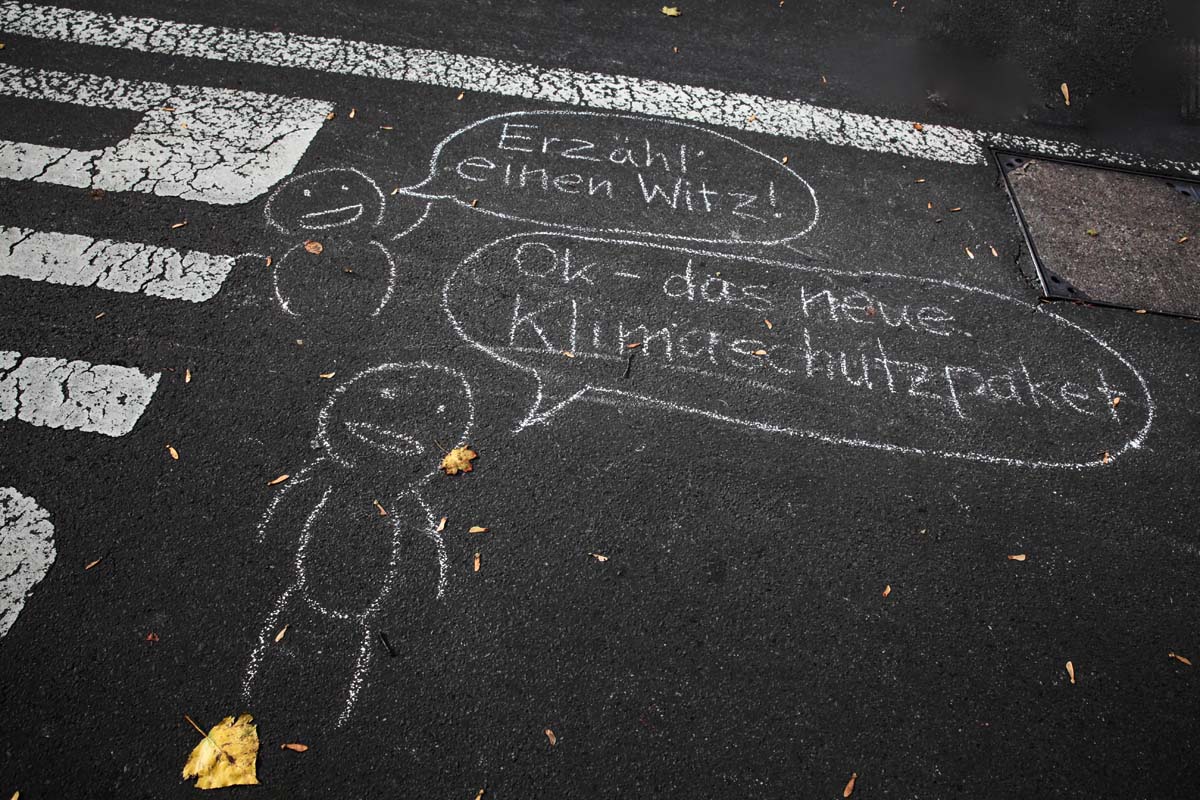 Erzähl
einen Witz!
Ok - das neue
Klimaschutzpaket